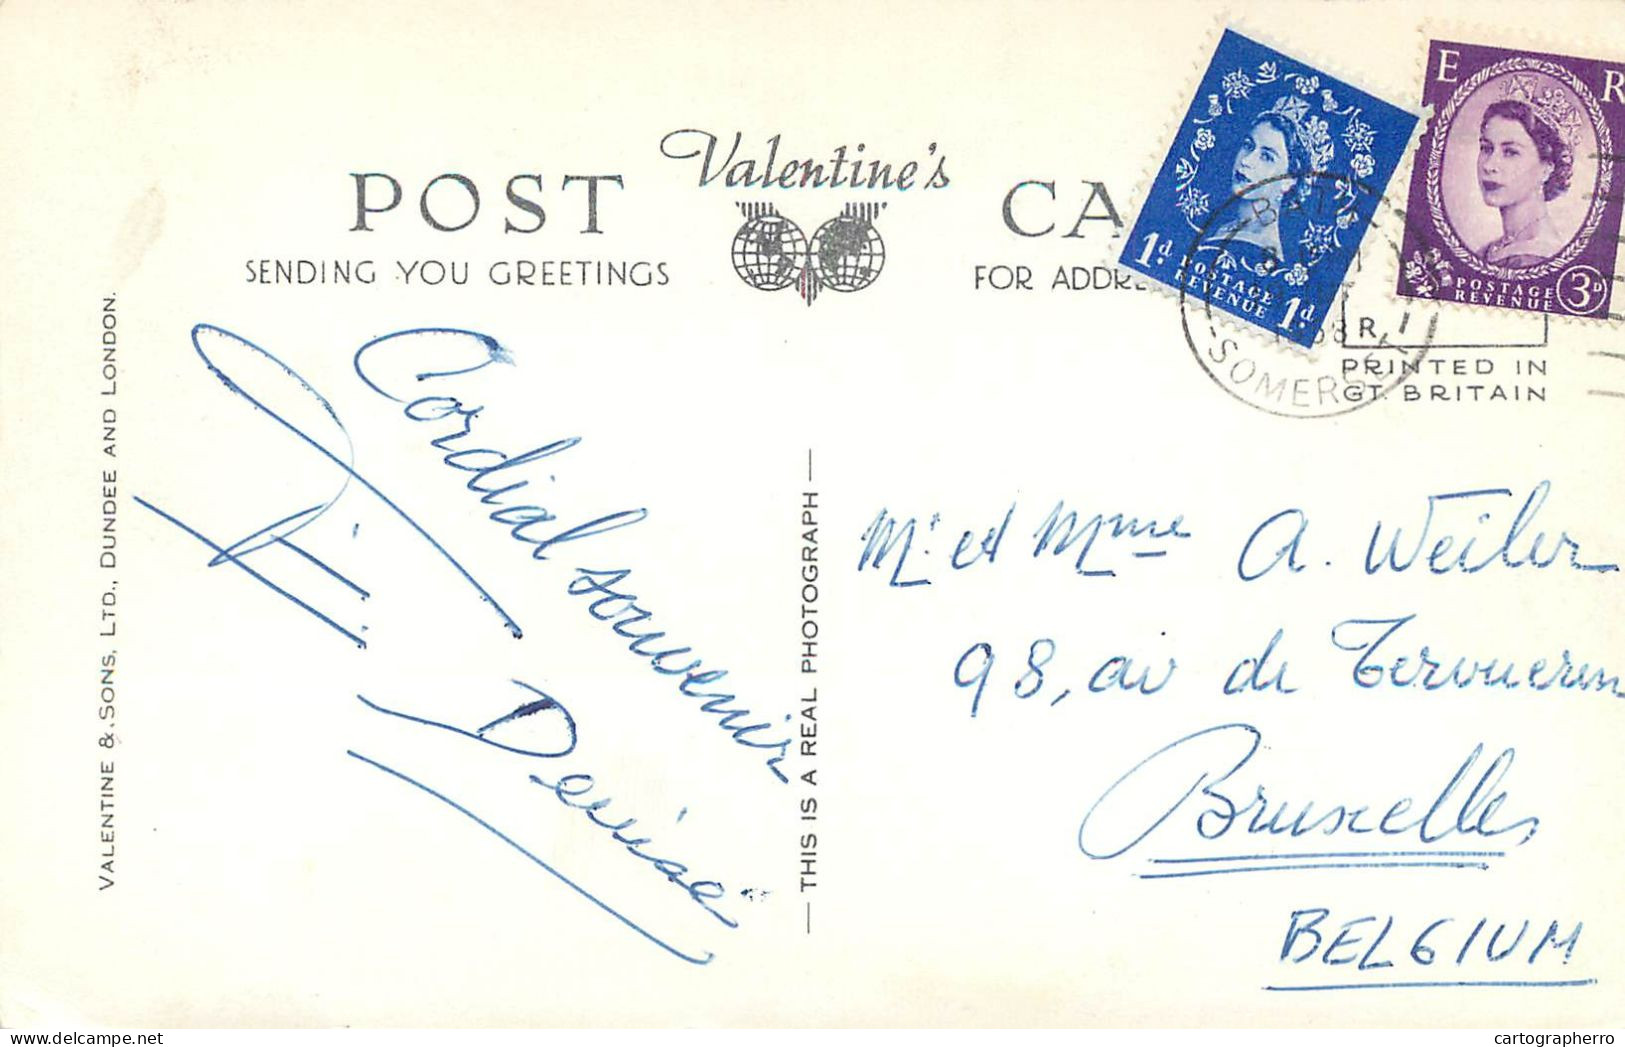 POST
Valentine's
CA
SENDING YOU GREETINGS
FOR ADDRE
1d. POSTAGE REVENUE 1d.
E R
POSTAGE REVENUE 3D
BATH
SOMERSET
R.
PRINTED IN
GT. BRITAIN
VALENTINE & SONS, LTD., DUNDEE AND LONDON.
Cordial souvenir
— THIS IS A REAL PHOTOGRAPH —
Mr et Mme A. Weiler
98, av de Tervueren
Bruxelles
BELGIUM
cartographerro